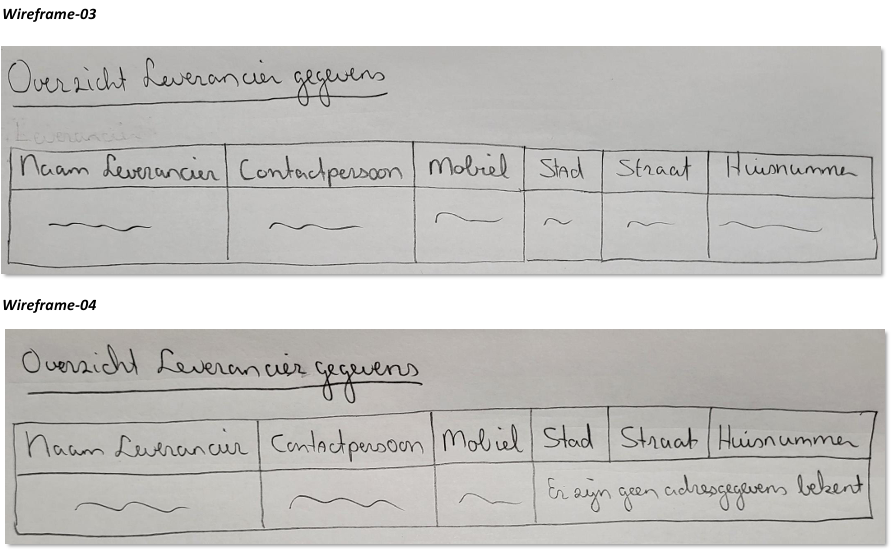 Wireframe-03
Overzicht Leverancier gegevens
Leverancier
Naam Leverancier Contactpersoon Mobiel Stad Straat Huisnummer
Wireframe-04
Overzicht Leverancier gegevens
Naam Leverancier Contactpersoon Mobiel Stad Straat Huisnummer
Er zijn geen adresgegevens bekent